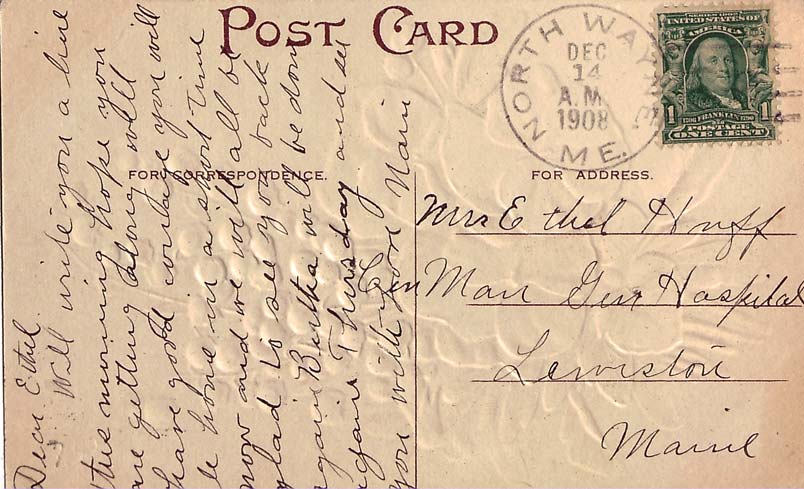 POST CARD
FOR CORRESPONDENCE.
FOR ADDRESS.
NORTH WAYNE ME.
DEC
14
A.M.
1908
SERIES 1902
UNITED STATES OF
AMERICA
1706 FRANKLIN 1790
1 POSTAGE 1
ONE CENT
Mrs Ethel Huff
Cen Man Gen Hospital
Lewiston
Maine
Dear Ethel.
Will write you a line
this morning hope you
are getting along well
have good courage you will
be home in a short time
now and we will all be
glad to see you back
again Bertha will be down
again Thursday and see
you with good